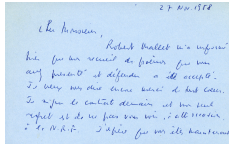 27 Nov. 1958
Cher Monsieur,
Robert Mallet m'a informé
que mon recueil de poèmes que vous
avez présenté et défendu a été accepté.
Je veux vous dire encore merci de tout cœur.
Je signe le contrat demain et mon seul
regret est de ne pas vous voir,
à la N.R.F. J'espère que vous êtes maintenant